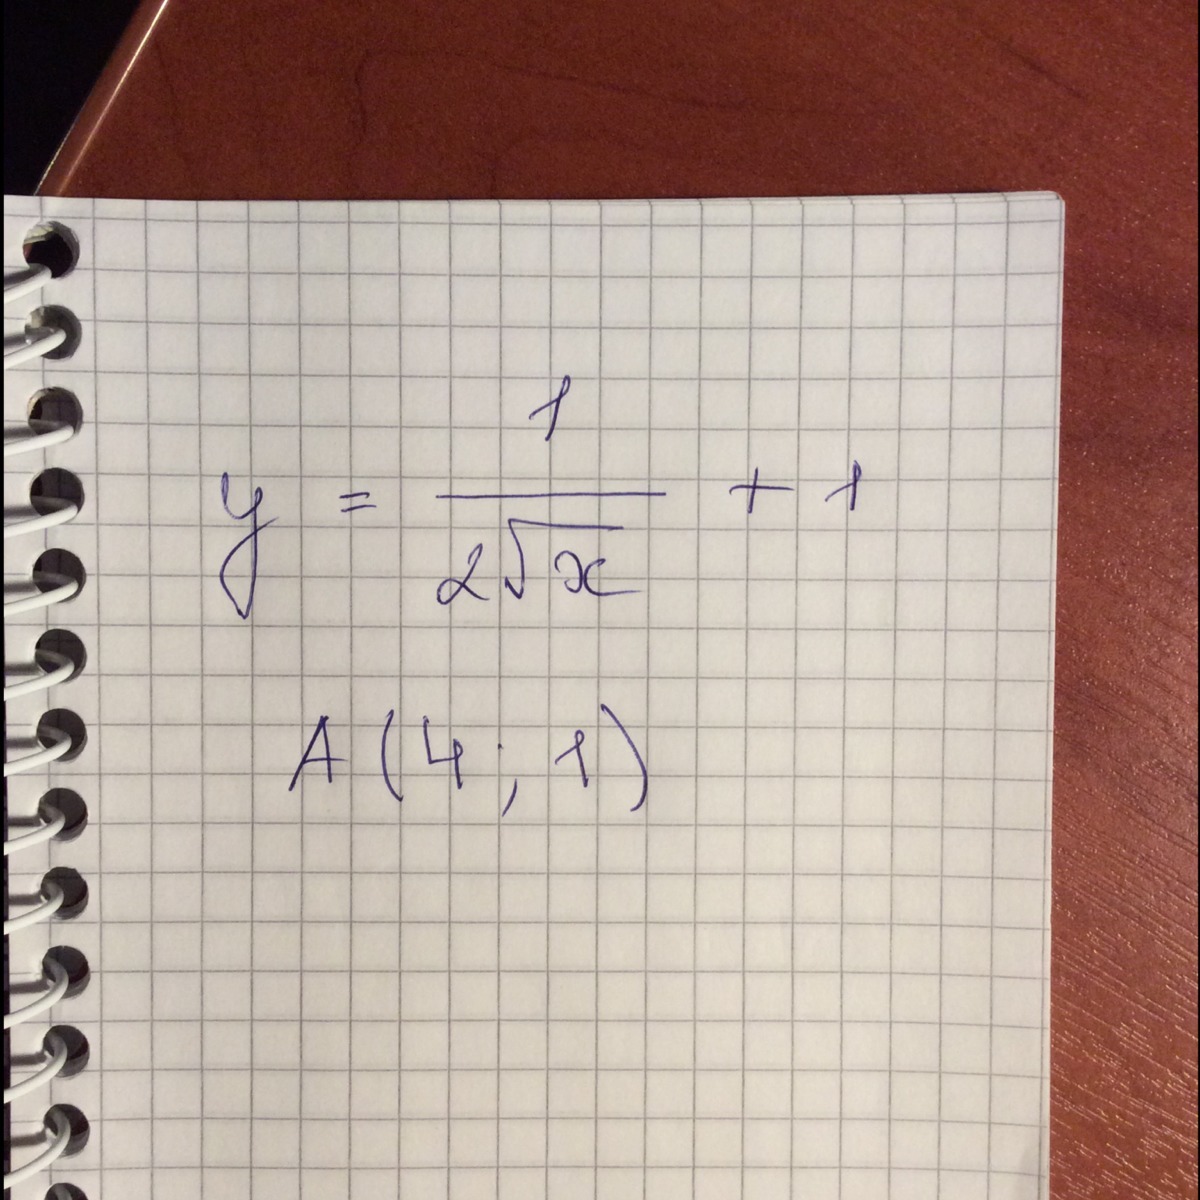 y = 1/(2√x) + 1
A (4; 1)